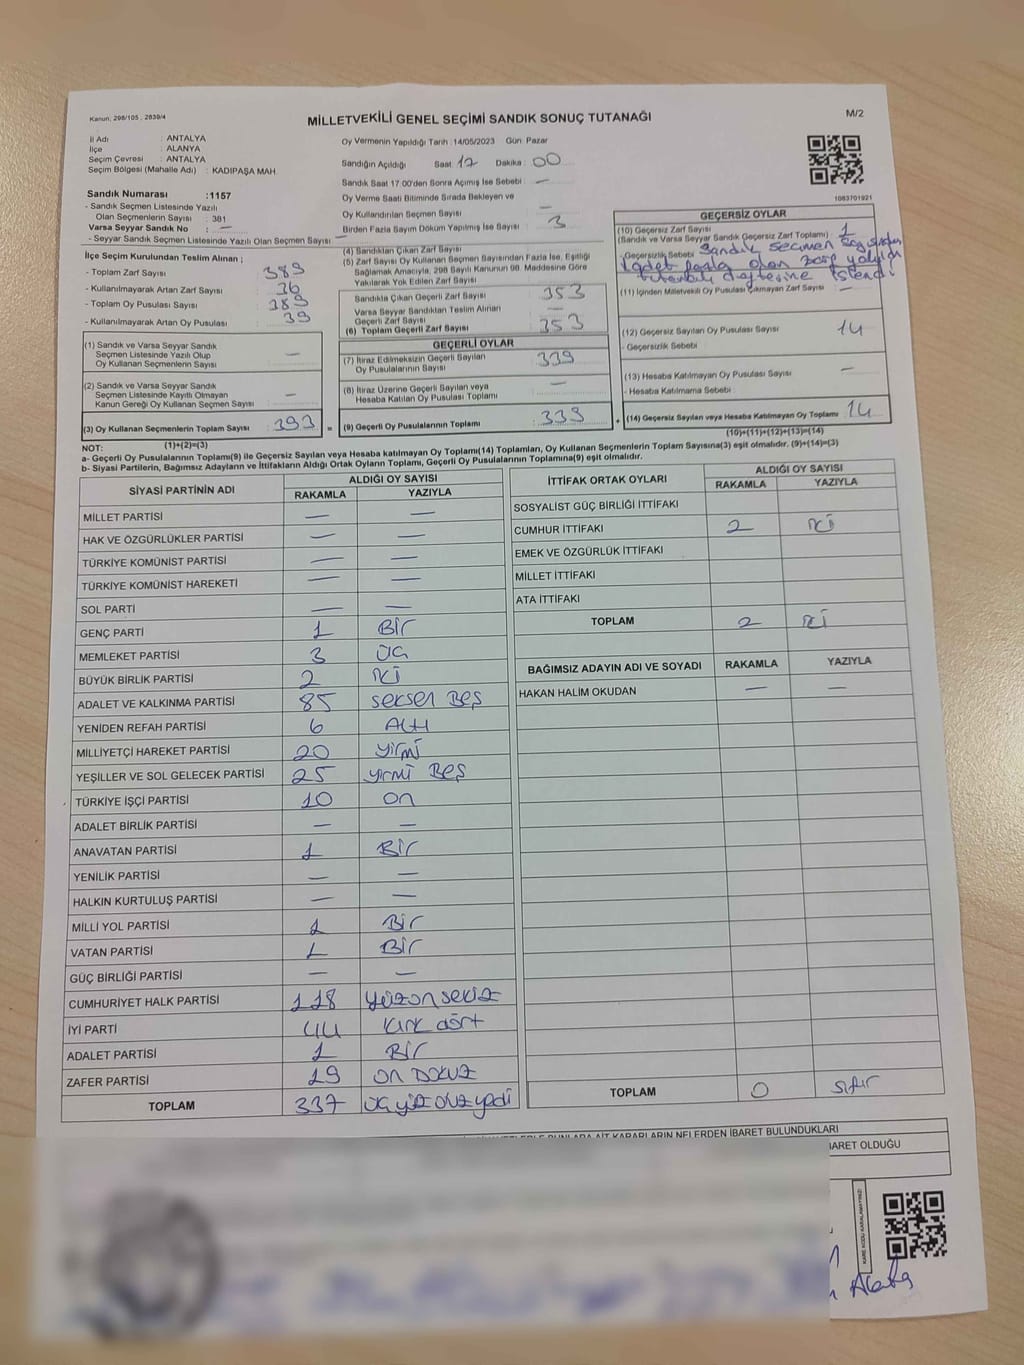 Kanun, 298/105 , 2839/4
MİLLETVEKİLİ GENEL SEÇİMİ SANDIK SONUÇ TUTANAĞI
M/2
İl Adı : ANTALYA
İlçe : ALANYA
Seçim Çevresi : ANTALYA
Seçim Bölgesi (Mahalle Adı) : KADIPAŞA MAH.
Sandık Numarası : 1157
- Sandık Seçmen Listesinde Yazılı
Olan Seçmenlerin Sayısı : 381
Varsa Seyyar Sandık No : —
- Seyyar Sandık Seçmen Listesinde Yazılı Olan Seçmen Sayısı —
Oy Vermenin Yapıldığı Tarih : 14/05/2023 Gün: Pazar
Sandığın Açıldığı Saat 17 Dakika : 00
Sandık Saat 17.00'den Sonra Açımış İse Sebebi : —
Oy Verme Saati Bitiminde Sırada Bekleyen ve
Oy Kullandırılan Seçmen Sayısı —
Birden Fazla Sayım Döküm Yapılmış İse Sayısı : 3
1083701921
İlçe Seçim Kurulundan Teslim Alınan ;
- Toplam Zarf Sayısı : 389
- Kullanılmayarak Artan Zarf Sayısı : 36
- Toplam Oy Pusulası Sayısı : 389
- Kullanılmayarak Artan Oy Pusulası : 39
(1) Sandık ve Varsa Seyyar Sandık
Seçmen Listesinde Yazılı Olup
Oy Kullanan Seçmenlerin Sayısı —
(2) Sandık ve Varsa Seyyar Sandık
Seçmen Listesinde Kayıtlı Olmayan
Kanun Gereği Oy Kullanan Seçmen Sayısı —
(3) Oy Kullanan Seçmenlerin Toplam Sayısı : 393 =
(1)+(2)=(3)
(4) Sandıktan Çıkan Zarf Sayısı
(5) Zarf Sayısı Oy Kullanan Seçmen Sayısından Fazla İse, Eşitliği
Sağlamak Amacıyla, 298 Sayılı Kanunun 98. Maddesine Göre
Yakılarak Yok Edilen Zarf Sayısı
Sandıkta Çıkan Geçerli Zarf Sayısı 353
Varsa Seyyar Sandıktan Teslim Alınan
Geçerli Zarf Sayısı —
(6) Toplam Geçerli Zarf Sayısı 353
GEÇERLİ OYLAR
(7) İtiraz Edilmeksizin Geçerli Sayılan
Oy Pusulalarının Sayısı : 339
(8) İtiraz Üzerine Geçerli Sayılan veya
Hesaba Katılan Oy Pusulası Toplamı —
(9) Geçerli Oy Pusulalarının Toplamı : 339 +
GEÇERSİZ OYLAR
(10) Geçersiz Zarf Sayısı
(Sandık ve Varsa Seyyar Sandık Geçersiz Zarf Toplamı) : 1
- Geçersizlik Sebebi : Sandık seçmen
1 adet fazla olan zarf
tutanak defterine işlendi
(11) İçinden Milletvekili Oy Pusulası Çıkmayan Zarf Sayısı —
(12) Geçersiz Sayılan Oy Pusulası Sayısı : 14
- Geçersizlik Sebebi
(13) Hesaba Katılmayan Oy Pusulası Sayısı —
- Hesaba Katılmama Sebebi
(14) Geçersiz Sayılan veya Hesaba Katılmayan Oy Toplamı : 14
(10)+(11)+(12)+(13)=(14)
NOT:
a- Geçerli Oy Pusulalarının Toplamı(9) ile Geçersiz Sayılan veya Hesaba katılmayan Oy Toplamı(14) Toplamları, Oy Kullanan Seçmenlerin Toplam Sayısına(3) eşit olmalıdır. (9)+(14)=(3)
b- Siyasi Partilerin, Bağımsız Adayların ve İttifakların Aldığı Ortak Oyların Toplamı, Geçerli Oy Pusulalarının Toplamına(9) eşit olmalıdır.
SİYASİ PARTİNİN ADI ALDIĞI OY SAYISI
RAKAMLA YAZIYLA
MİLLET PARTİSİ — —
HAK VE ÖZGÜRLÜKLER PARTİSİ — —
TÜRKİYE KOMÜNİST PARTİSİ — —
TÜRKİYE KOMÜNİST HAREKETİ — —
SOL PARTİ — —
GENÇ PARTİ 1 Bir
MEMLEKET PARTİSİ 3 üç
BÜYÜK BİRLİK PARTİSİ 2 iki
ADALET VE KALKINMA PARTİSİ 85 seksen Beş
YENİDEN REFAH PARTİSİ 6 Altı
MİLLİYETÇİ HAREKET PARTİSİ 20 yirmi
YEŞİLLER VE SOL GELECEK PARTİSİ 25 yirmi Beş
TÜRKİYE İŞÇİ PARTİSİ 10 on
ADALET BİRLİK PARTİSİ — —
ANAVATAN PARTİSİ 1 Bir
YENİLİK PARTİSİ — —
HALKIN KURTULUŞ PARTİSİ — —
MİLLİ YOL PARTİSİ 1 Bir
VATAN PARTİSİ 1 Bir
GÜÇ BİRLİĞİ PARTİSİ — —
CUMHURİYET HALK PARTİSİ 118 yüzon sekiz
İYİ PARTİ 44 kırk dört
ADALET PARTİSİ 1 Bir
ZAFER PARTİSİ 19 on Dokuz
TOPLAM 337 üçyüz otuz yedi
İTTİFAK ORTAK OYLARI ALDIĞI OY SAYISI
RAKAMLA YAZIYLA
SOSYALİST GÜÇ BİRLİĞİ İTTİFAKI
CUMHUR İTTİFAKI 2 iki
EMEK VE ÖZGÜRLÜK İTTİFAKI
MİLLET İTTİFAKI
ATA İTTİFAKI
TOPLAM 2 iki
BAĞIMSIZ ADAYIN ADI VE SOYADI RAKAMLA YAZIYLA
HAKAN HALİM OKUDAN — —
TOPLAM 0 sıfır
AİT KARARLARIN NELERDEN İBARET BULUNDUKLARI
BARET OLDUĞU
KARE KODU KARALAMAYINIZ!